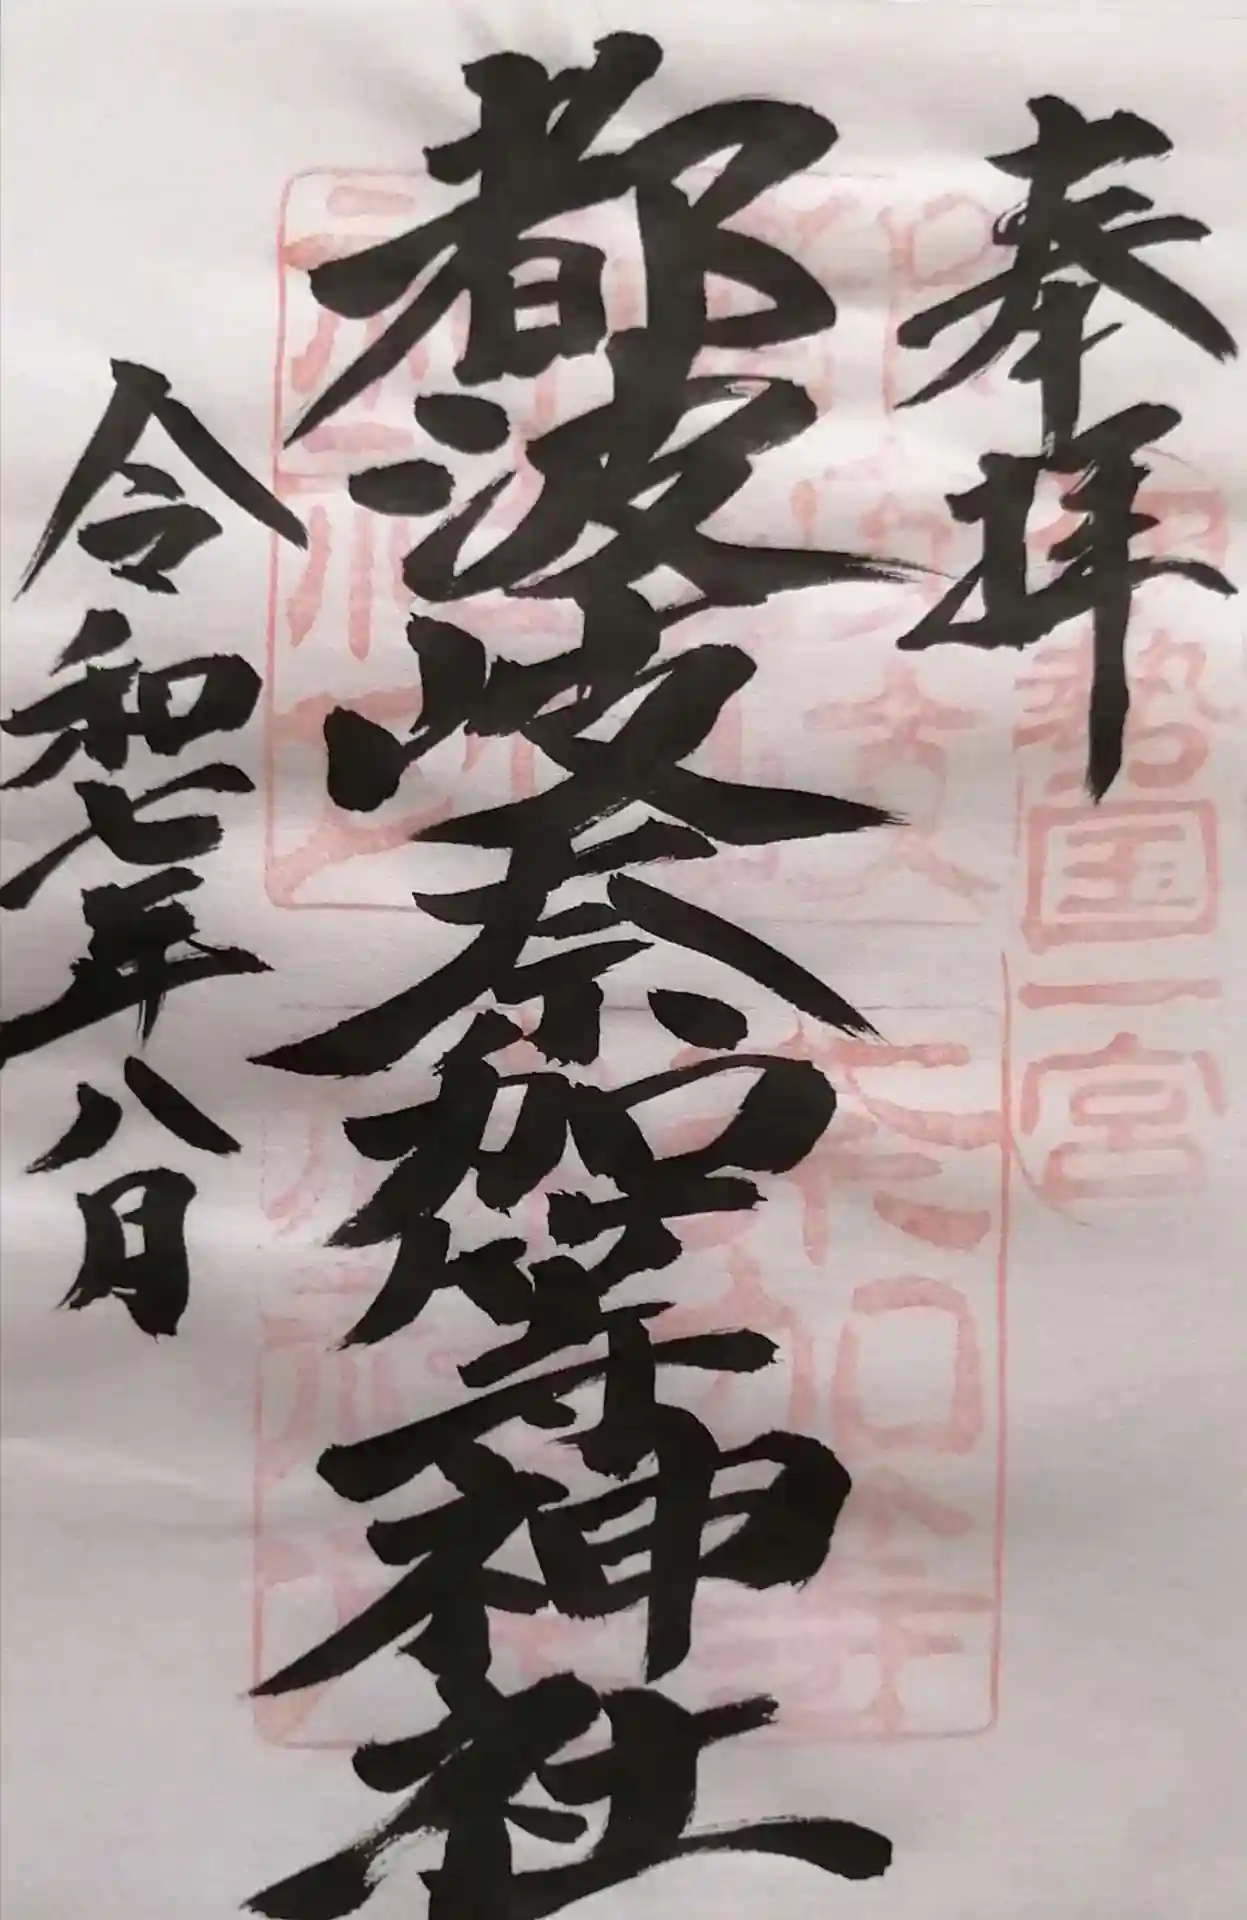 奉拝
伊勢国一宮
都波岐奈加等神社
令和七年八月